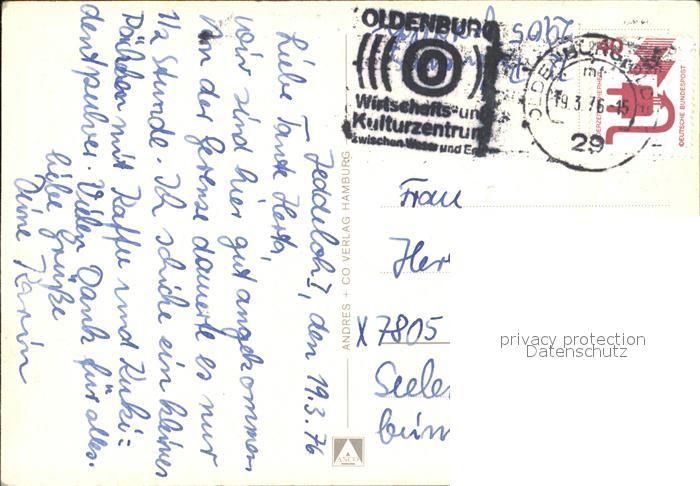 Jeddeloh I, den 19.3.76
Liebe Tante Herta,
wir sind hier gut angekommen
An der Grenze dauerte es nur
1/2 Stunde. Ich schicke ein kleines
Päckchen mit Kaffee und Kuki=
dentpulver. Vielen Dank für alles.
liebe Grüße
Deine Karin
ANDRES + CO VERLAG HAMBURG
ANCO
2905
OLDENBURG
Wirtschafts-und
Kulturzentrum
zwischen Weser und Ems
19.3.76-15
mf
29
40
DEUTSCHE BUNDESPOST
Frau
Her
X 7805
privacy protection
Datenschutz